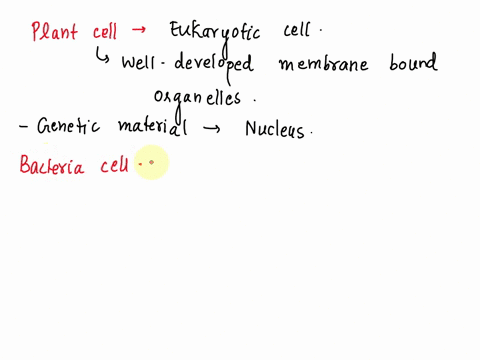 Plant cell → Eukaryotic cell.
↳ Well-developed membrane bound
organelles.
- Genetic material → Nucleus.
Bacteria cell -